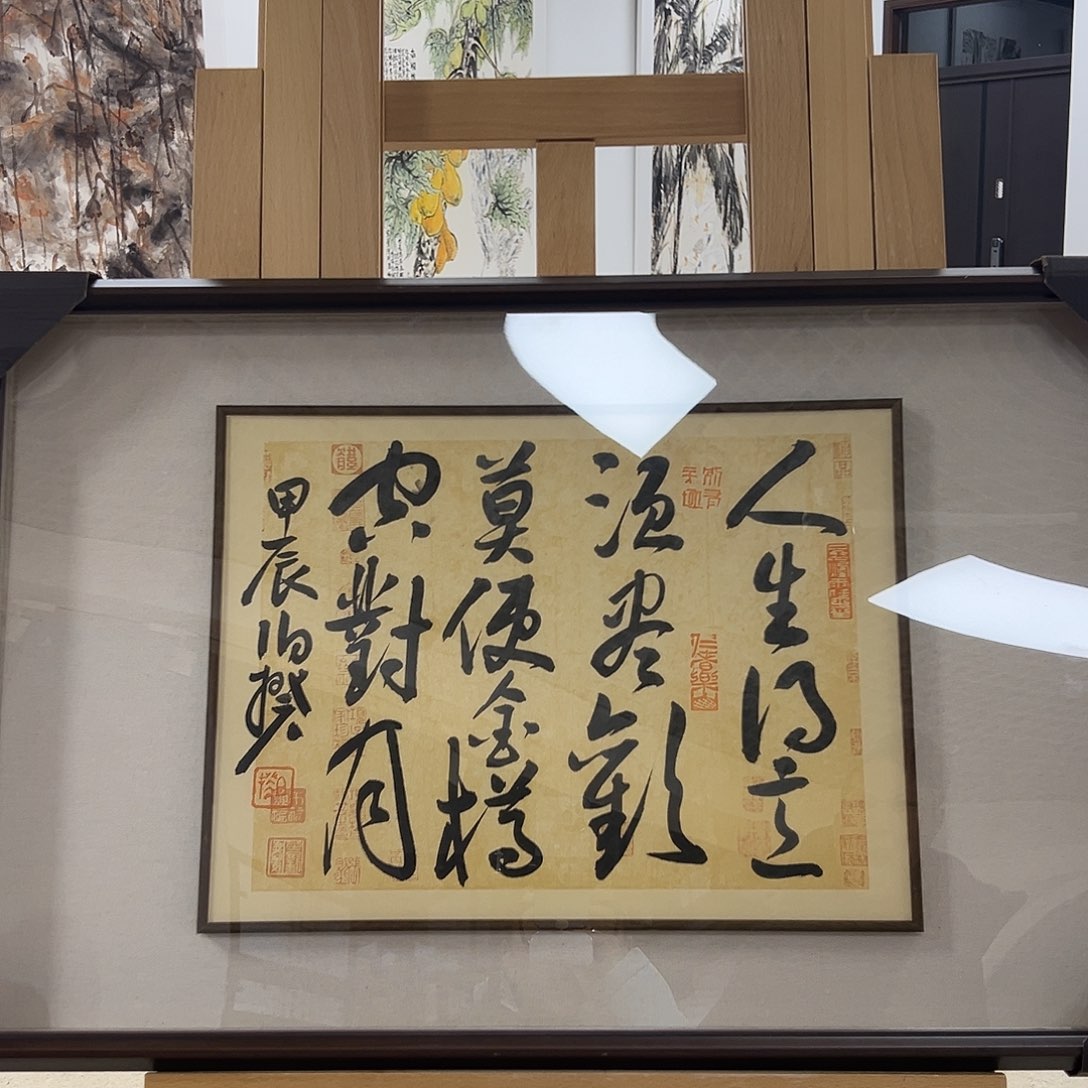 人生得意
須尽歡
莫使金樽
空對月
甲辰